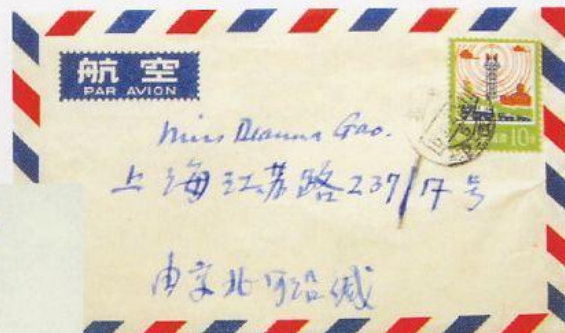 航空
PAR AVION
10分
Miss Deanna Gao.
上海江苏路237/17号
由京北河沿缄